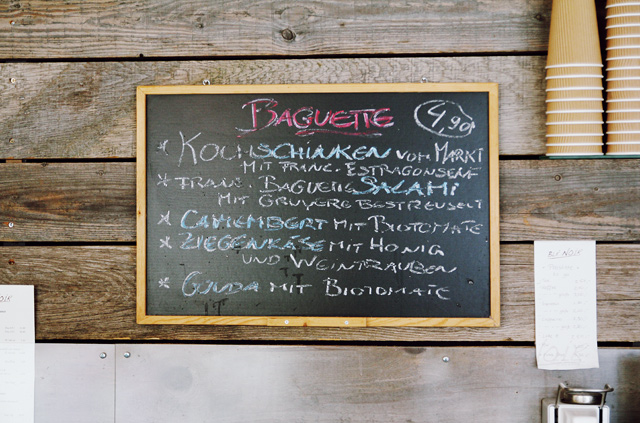 BAGUETTE 4,90
* KOCHSCHINKEN VOM MARKT
MIT FRANC. ESTRAGONSENF
* FRANC. BAGUETTE SALAMI
MIT GRUYERE BESTREUSELT
* CAMEMBERT MIT BIOTOMATE
* ZIEGENKÄSE MIT HONIG
UND WEINTRAUBEN
* GOUDA MIT BIOTOMATE